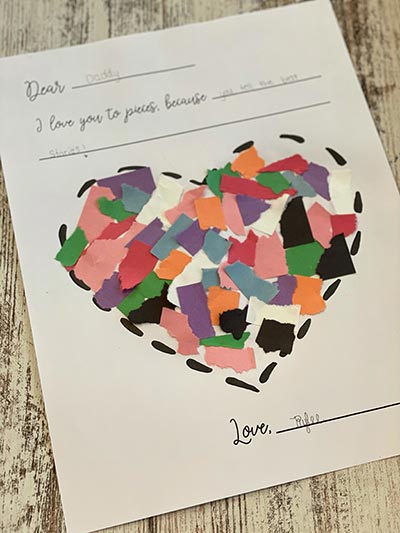 Dear Daddy
I love you to pieces, because you tell the best
Stories!
Love, Rylee